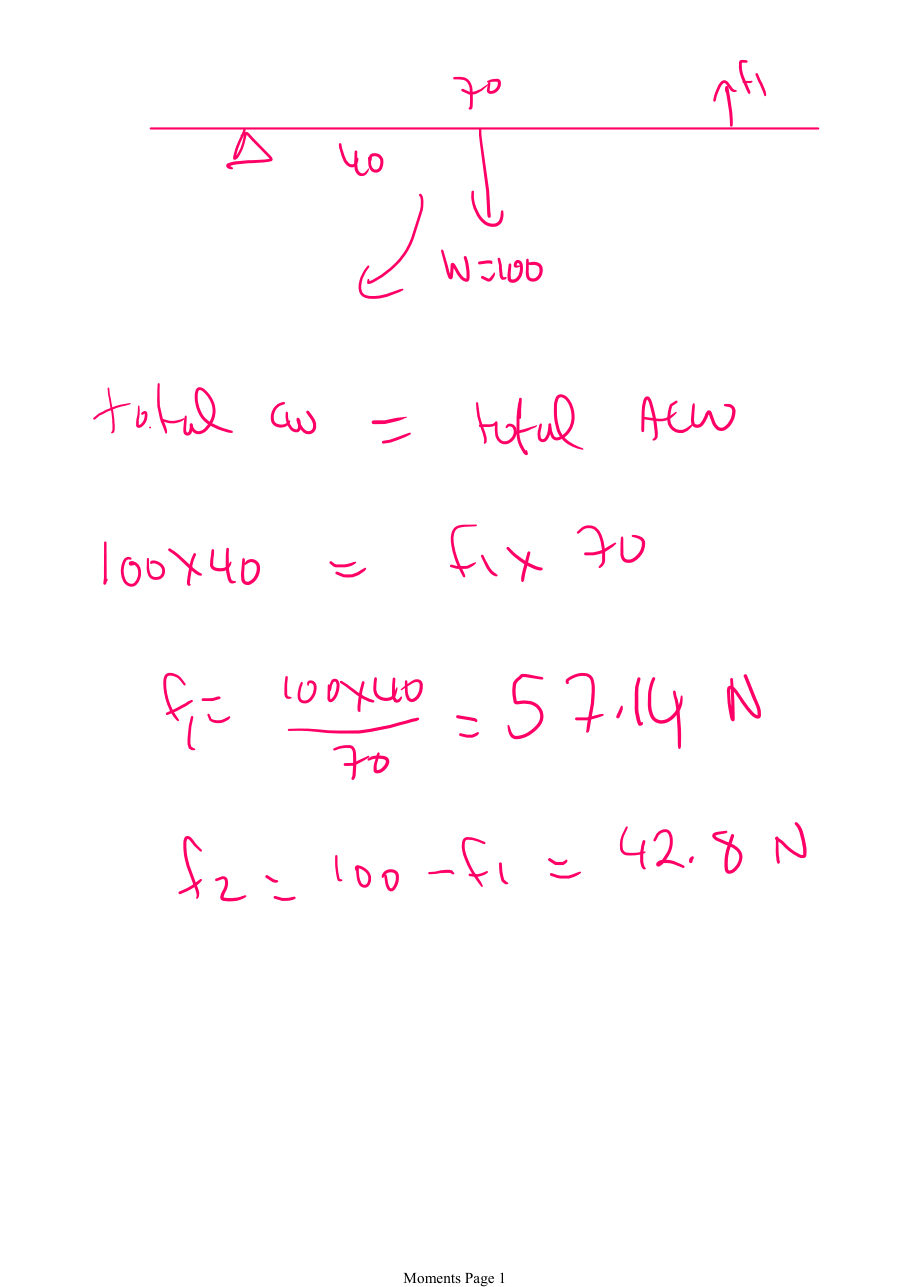 70
F1
40
W=100
total cw = total ACW
100×40 = f1 × 70
f1 = 100×40 / 70 = 57.14 N
f2 = 100 - f1 = 42.8 N
Moments Page 1